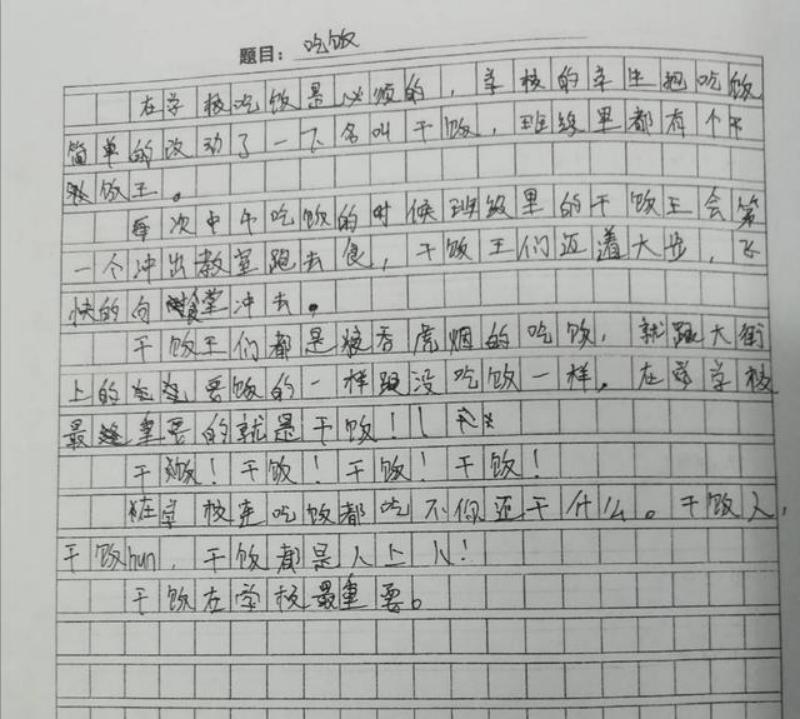 题目：吃饭
在学校吃饭是必须的，学校的学生把吃饭
简单的改动了一下名叫干饭，班级里都有个干
饭王。
每次中午吃饭的时候班级里的干饭王会第
一个冲出教室跑去食，干饭王们迈着大步，飞
快的向食堂冲去。
干饭王们都是狼吞虎烟的吃饭，就跟大街
上的要饭的一样跟没吃饭一样，在学校
最重要的就是干饭！！
干饭！干饭！干饭！干饭！
在学校连吃饭都吃不你还干什么。干饭人，
干饭hun，干饭都是人上人！
干饭在学校最重要。